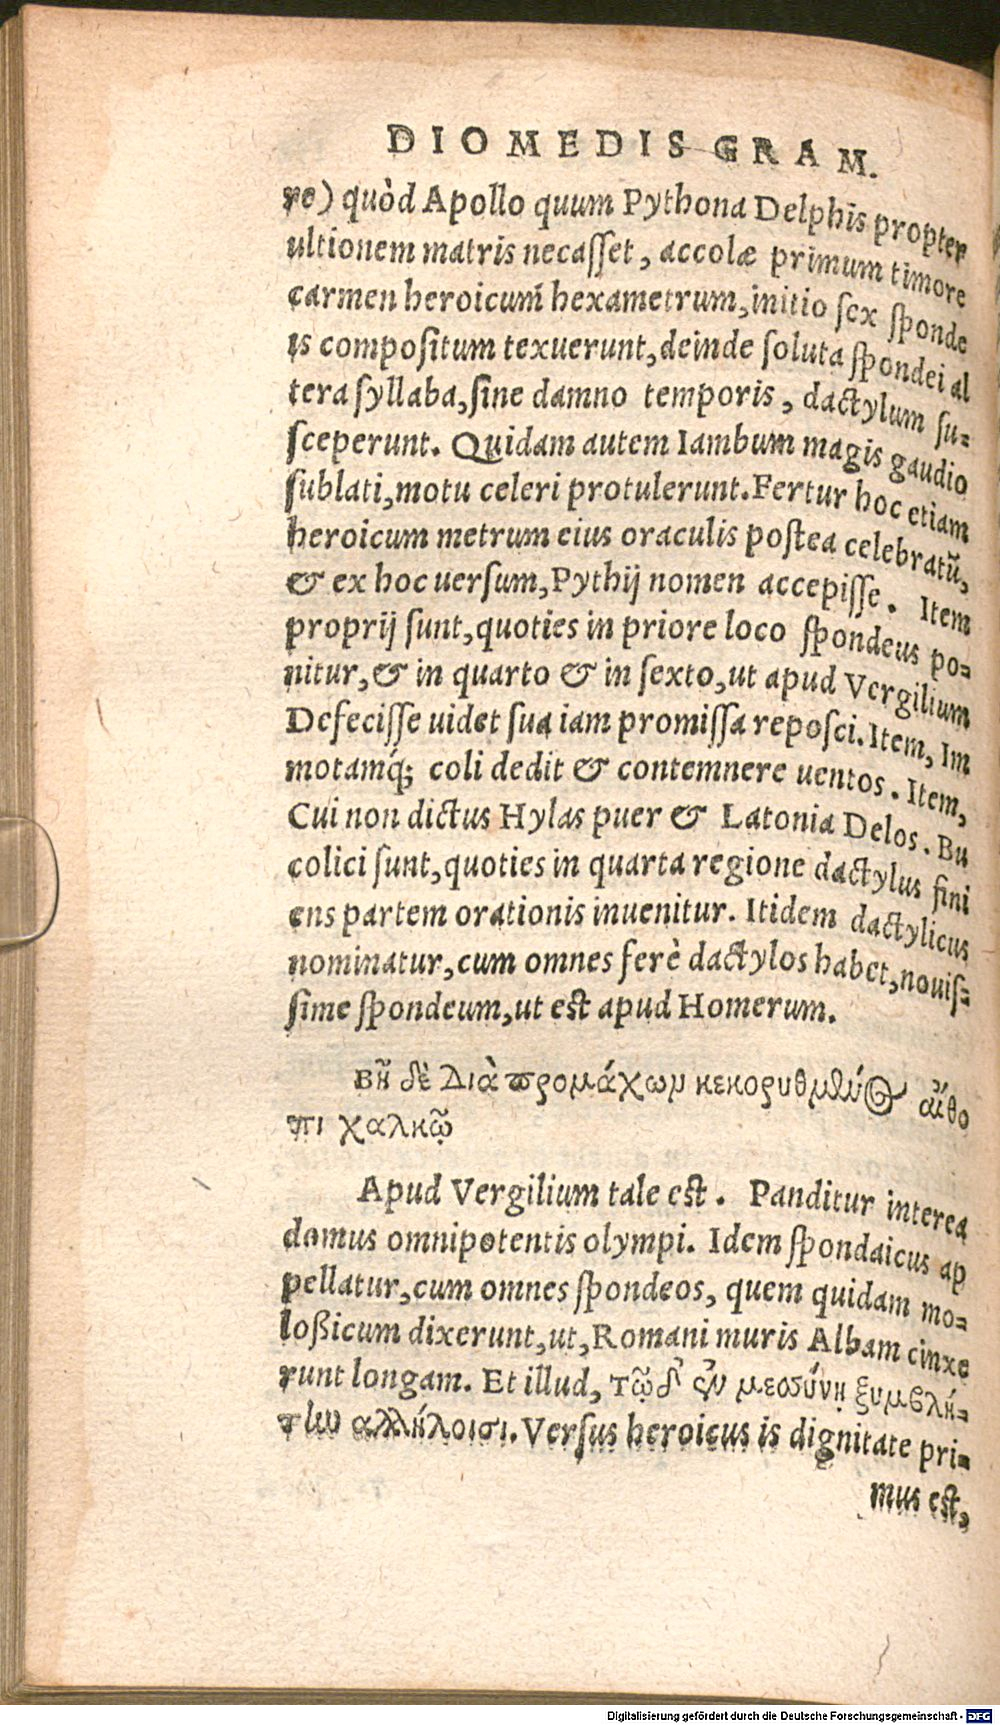 DIOMEDIS GRAM.
re) quòd Apollo quum Pythona Delphis propter
ultionem matris necasſet, accolæ primum timore
carmen heroicum hexametrum, initio ſex ſponde
is compoſitum texuerunt, deinde ſoluta ſpondei al
tera ſyllaba, ſine damno temporis, dactylum ſu-
ſceperunt. Quidam autem Iambum magis gaudio
ſublati, motu celeri protulerunt. Fertur hoc etiam
heroicum metrum eius oraculis poſtea celebratũ,
& ex hoc uerſum, Pythij nomen accepiſſe. Item
proprij ſunt, quoties in priore loco ſpondeus po-
nitur, & in quarto & in ſexto, ut apud Vergilium
Defeciſſe uidet ſua iam promiſſa repoſci. Item, Im
motamq́; coli dedit & contemnere uentos. Item,
Cui non dictus Hylas puer & Latonia Delos. Bu
colici ſunt, quoties in quarta regione dactylus fini
ens partem orationis inuenitur. Itidem dactylicus
nominatur, cum omnes ferè dactylos habet, nouiſ-
ſime ſpondeum, ut eſt apud Homerum.
βῆ δὲ διὰ προμάχων κεκορυθμένος αἴθο
πι χαλκῷ
Apud Vergilium tale eſt. Panditur interea
domus omnipotentis olympi. Idem ſpondaicus ap
pellatur, cum omnes ſpondeos, quem quidam mo-
loßicum dixerunt, ut, Romani muris Albam cinxe
runt longam. Et illud, τῷ δ' ἐν μεσσύνῃ ξυμβλή-
την αλλήλοισι. Verſus heroicus is dignitate pri-
mus eſt,
Digitalisierung gefördert durch die Deutsche Forschungsgemeinschaft - DFG